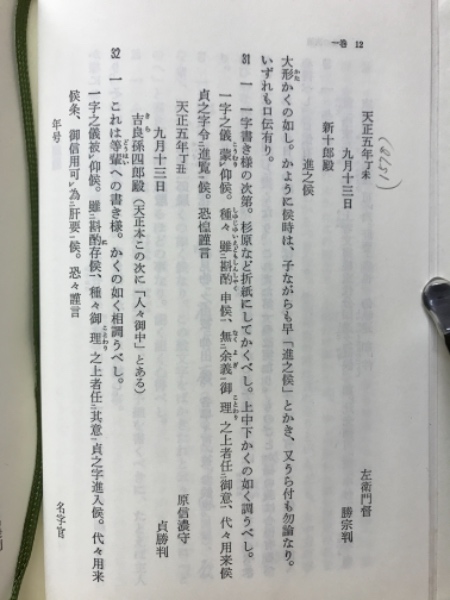 一巻 12
天正五年丁未
(1578)
左衛門督
九月十三日
勝宗判
新十郎殿
進之候
大形かくの如し。かように候時は、子ながらも早「進之候」とかき、又うら付も勿論なり。
いずれも口伝有り。
31 一 一字書き様の次第。杉原など折紙にしてかくべし。上中下かくの如く調うべし。
一字之儀蒙レ仰候。種々雖二斟酌一申候、無二余義一御理之上者任二御意一、代々用来候
貞之字令二進覧一候。恐惶謹言
天正五年丁丑
原信濃守
九月十三日
貞勝判
吉良孫四郎殿（天正本この次に「人々御中」とある）
32 一 これは等輩への書き様。かくの如く相調うべし。
一字之儀被レ仰候。雖二斟酌存候一、種々御理之上者任二其意一貞之字進入候。代々用来
候条、御信用可レ為二肝要一候。恐々謹言
年号
名字官